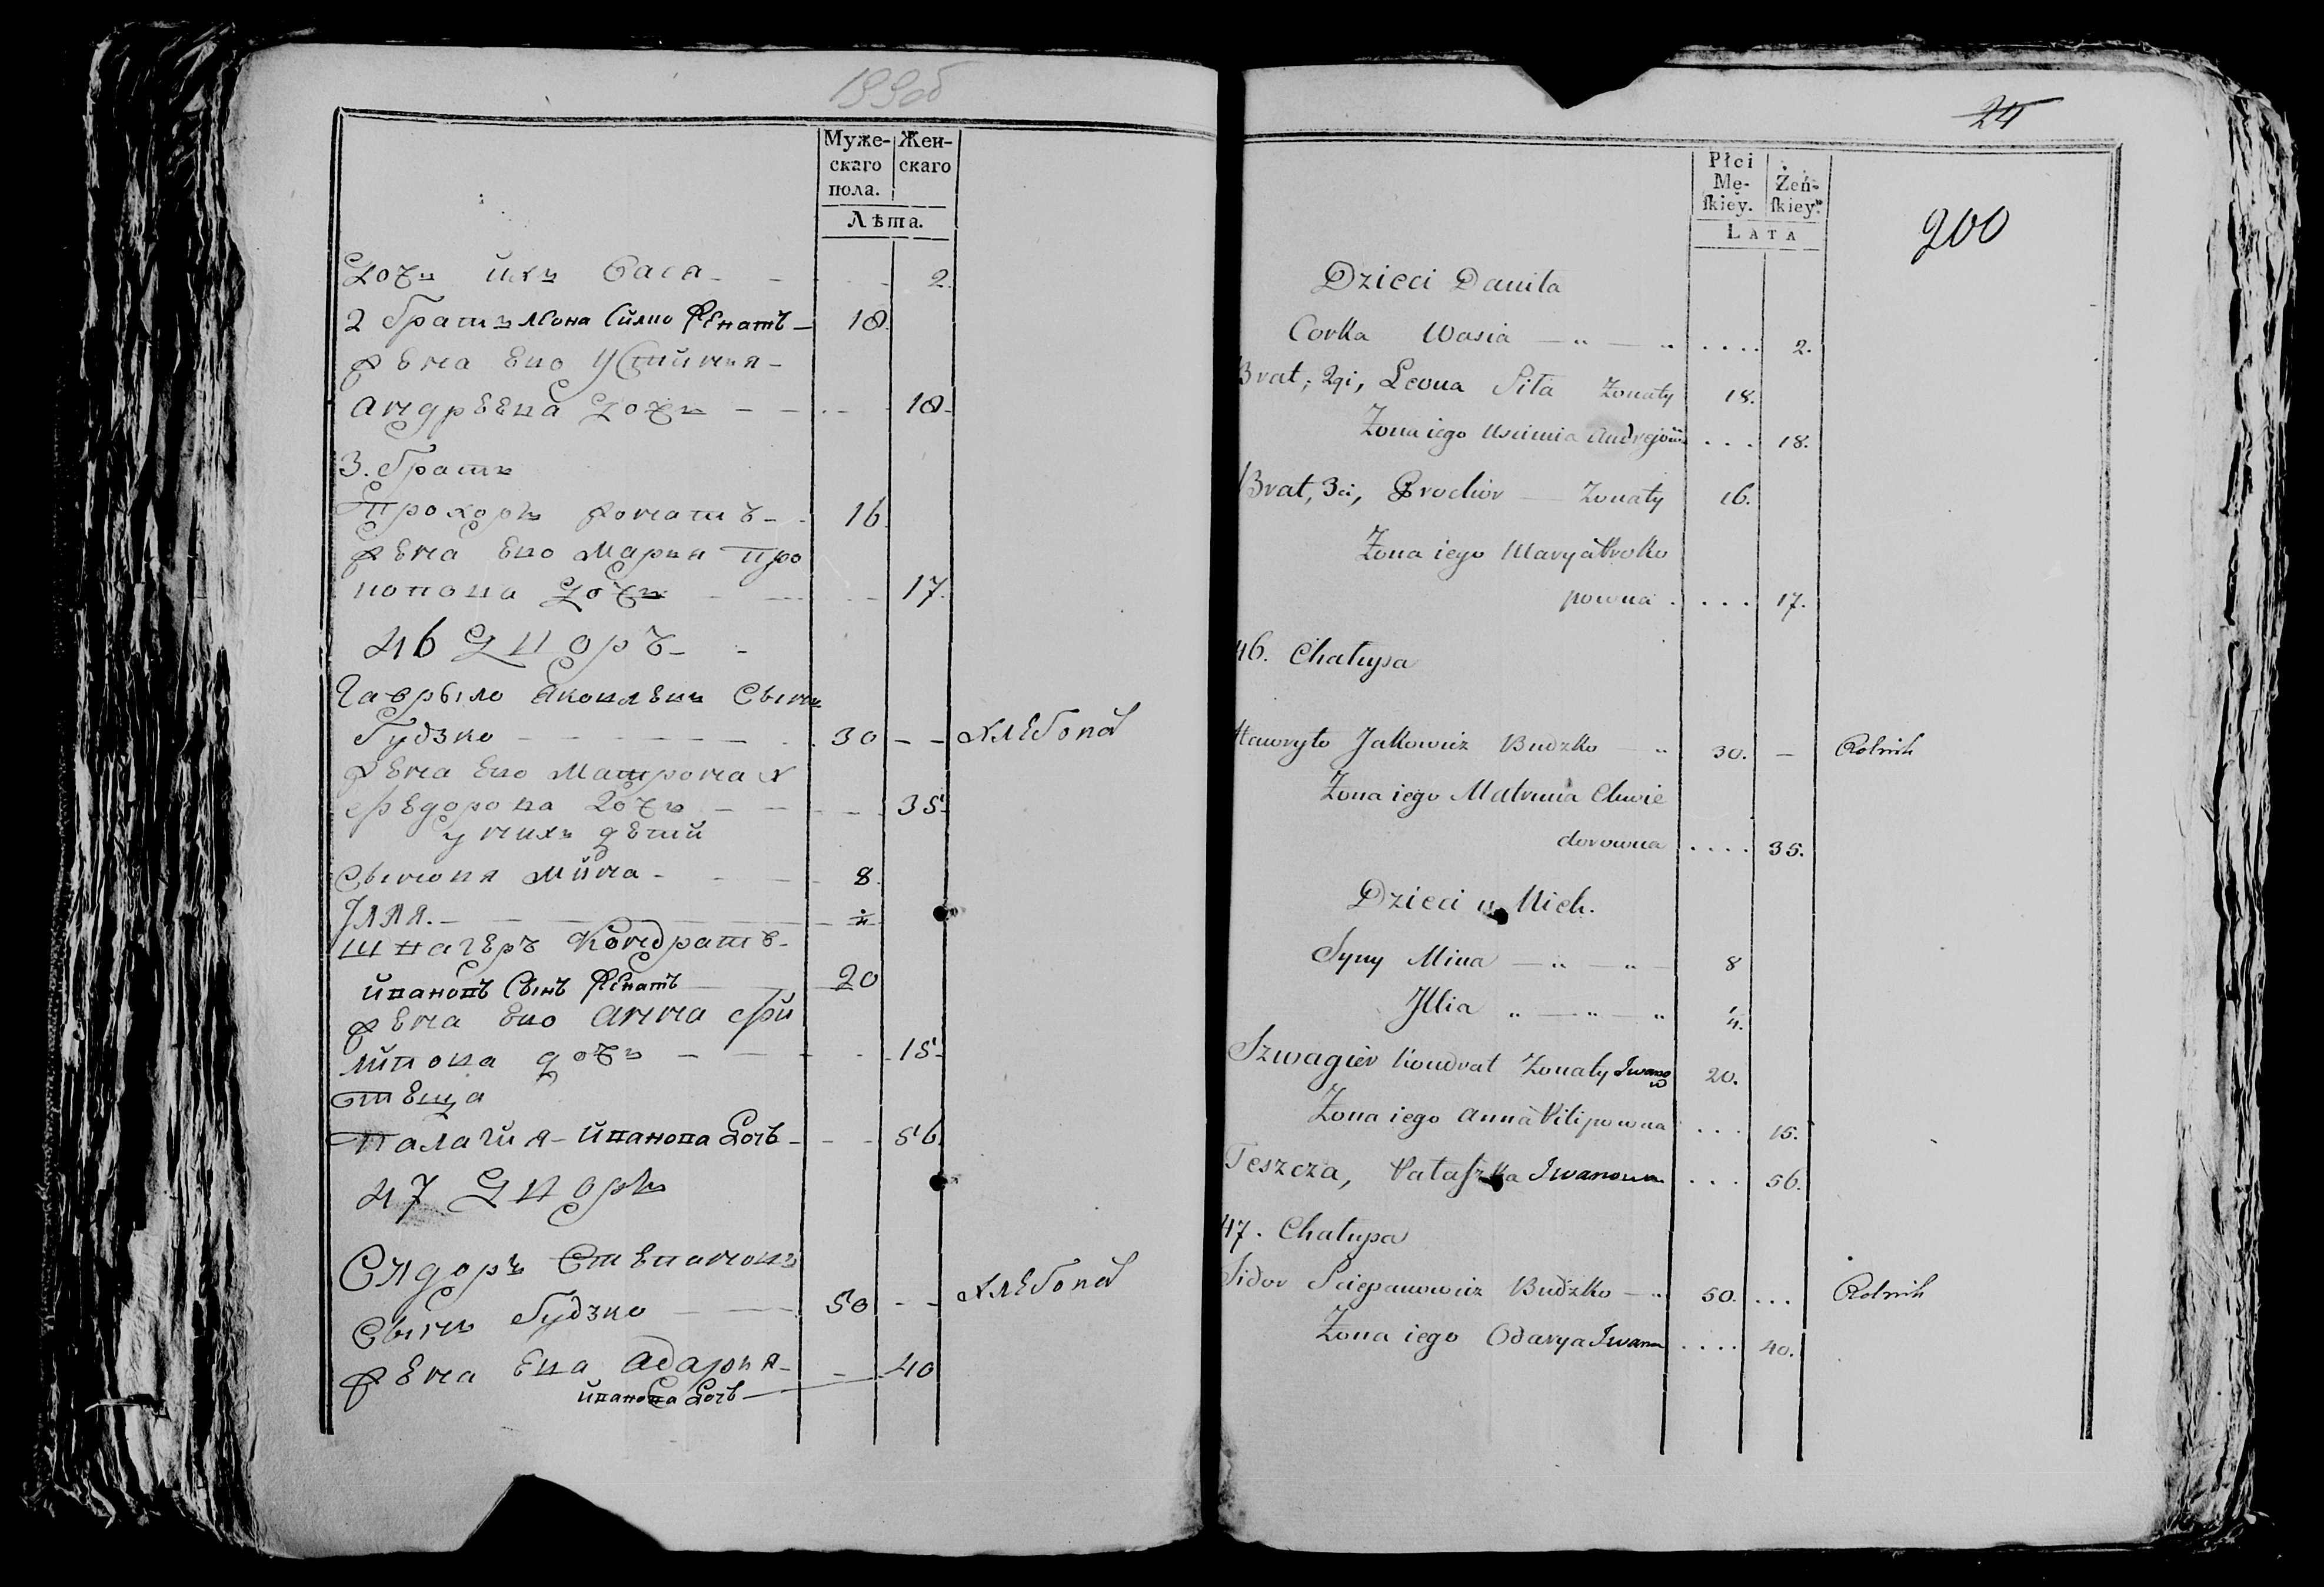 199об
Муже-
скаго
пола.
Жен-
скаго
Лѣта.
Дочь ихъ Васа - - - - 2.
2 братъ Леона Сило женатъ - 18.
жена его Устимия -
Андреева дочь - - - - 18.
3. братъ
Прохоръ женатъ - - 16.
жена его Мария Про
копова дочь - - - 17.
46 Дворъ - -
Гаврыло Яковлевъ Сынъ
Будзко - - - - 30 - - Хлебопа
жена его Матрона Х
ведорова дочь - - - - 35.
у нихъ дети
Сынова Мина - - - 8.
Илля. - - - - 4
Швагеръ Кондратъ -
Ивановъ Сынъ женатъ - 20
жена его Анна Фи
липова дочь - - - - 15.
теща
Палагия - Иванова Дочь - - - 56.
47 Дворъ
Сидоръ Степановъ
Сынъ Будзко - - 50 - - Хлебопа
жена ева Адария - - 40
Иванова Дочь -
24
Płci
Mę-
ſkiey.
Żeń-
ſkiey.
LATA
200
Dzieci Daniła
Corka Wasia — „ — „ . . . . 2.
Brat, 2gi, Leona Siła Żonaty 18.
Żona iego Uscimia Andrejow . . . 18.
Brat, 3ci, Prochor — Żonaty 16.
Żona iego Marya Proko
powna . . . . 17.
46. Chałupa
Hawryło Jakowicz Budzko — „ 30. — Rolnik
Żona iego Matruna Chwie
dorowna . . . . 35.
Dzieci u Nich.
Syny Mina — „ — „ — 8
Jllia „ — „ — „ 4.
Szwagier Kondrat Żonaty Iwanow 20.
Żona iego Anna Pilipowna . . . 15.
Teszcza, Pałaſzka Iwanowa . . . 56.
47. Chałupa
Sidor Sciepanowicz Budzko — „ 50. . . . Rolnik
Żona iego Odarya Iwana . . . . 40.